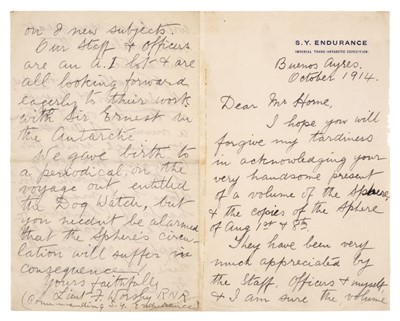 S.Y. ENDURANCE
IMPERIAL TRANS-ANTARCTIC EXPEDITION.
Buenos Ayres.
October 1914.
Dear Mr Home,
I hope you will
forgive my tardiness
in acknowledging your
very handsome present
of a volume of the Sphere,
& the copies of the Sphere
of Aug 1st & 8th.
They have been very
much appreciated by
the Staff, Officers & myself
& I am sure the volume
on 8 new subjects.
Our Staff & Officers
are an A.1 lot & are
all looking forward
eagerly to their work
with Sir Ernest in
the Antarctic.
We gave birth to
a periodical, on the
voyage out, entitled
the Dog Watch, but
you needn't be alarmed
that the Sphere's circu-
lation will suffer in
consequence.
Yours faithfully,
Lieut F. Worsley R.N.R
(Commanding S.Y. Endurance)